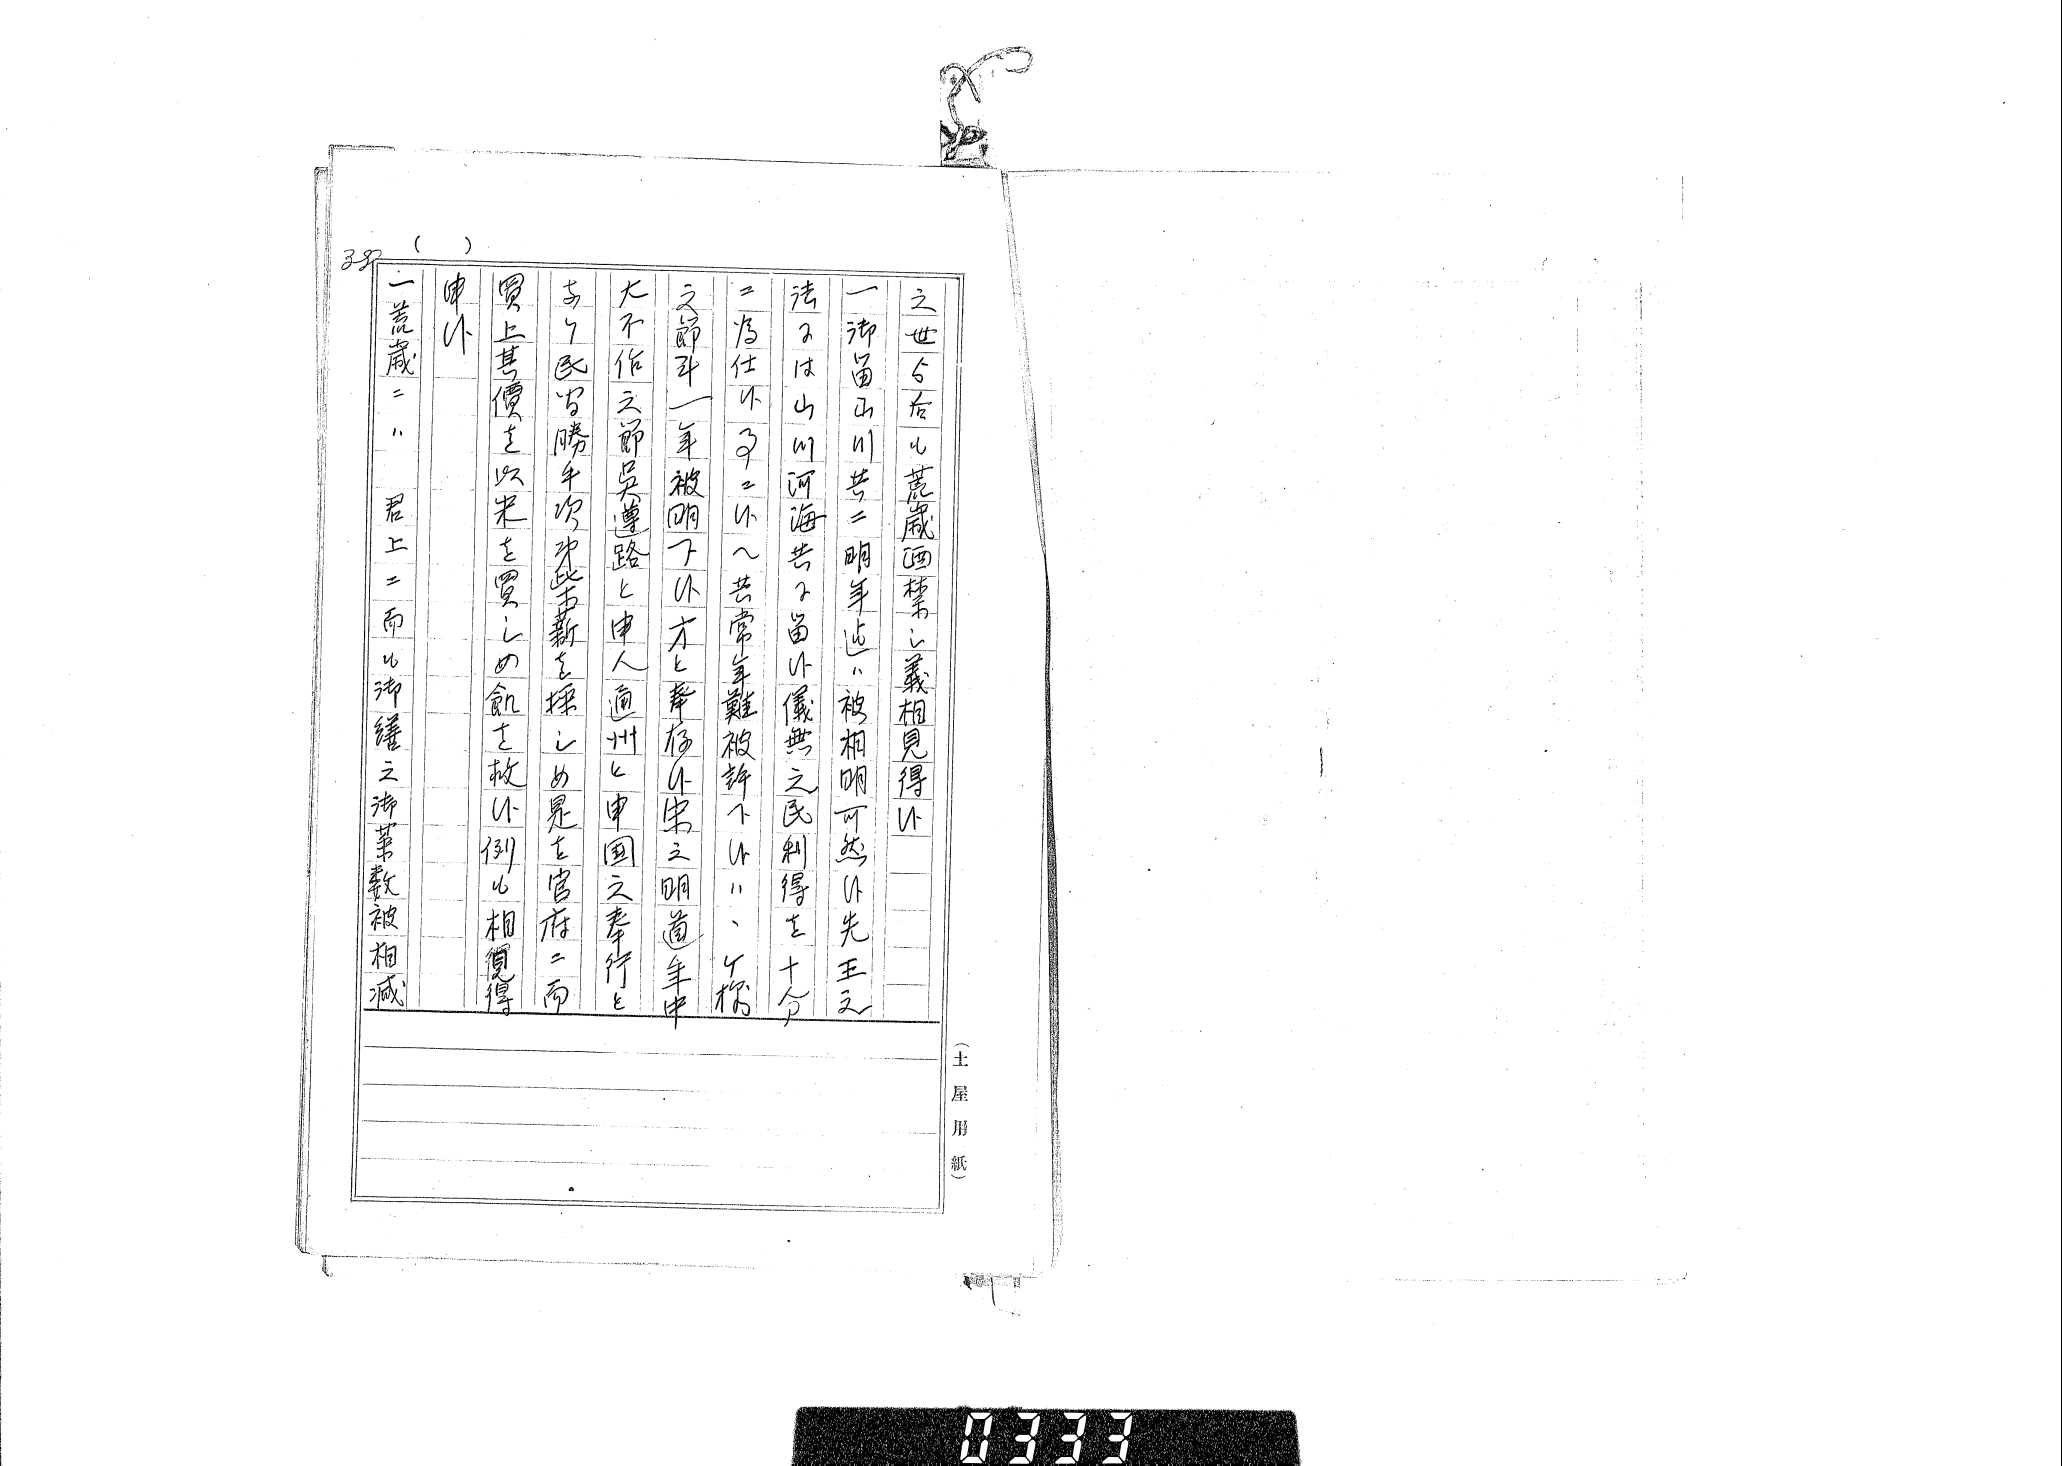 之世与右も荒歳酒禁之義相見得候
一御留山川共ニ明年迄ハ被相明可然候先王之
法には山川河海共に留候儀無之民利得を十分
ニ為仕候事ニ候へ共常年難被許下候ハヽケ様
之節斗一年被明下候方と奉存候宋之明道年中
大不作之節呉遵路と申人通州と申国之奉行と
なり民者勝手次第柴薪を採しめ是を官府ニ而
買上其價を以米を買しめ飢を救候例も相見得
申候
一荒歳ニハ 君上ニ而も御膳之御菜数被相減
332
( )
(土屋用紙)
0333